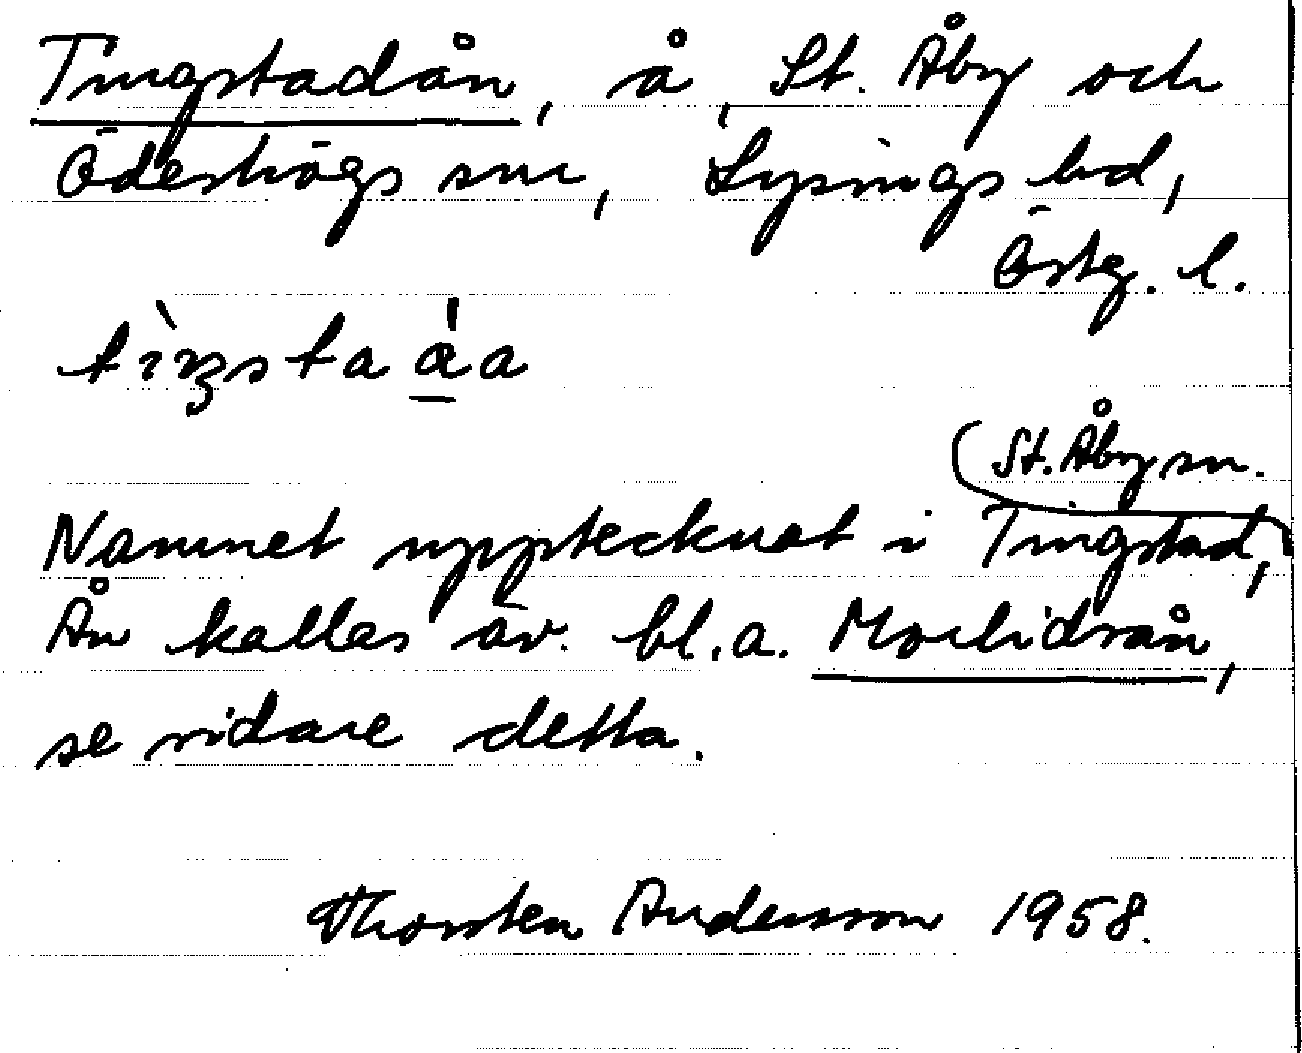 Tingstadån, å, St. Åby och
Ödeshögs snr, Lysings hd,
Östg. l.
St. Åby sn.
Namnet upptecknat i Tingstad,
Ån kallas äv. bl.a.
se vidare detta.
Thorsten Andersson 1958.